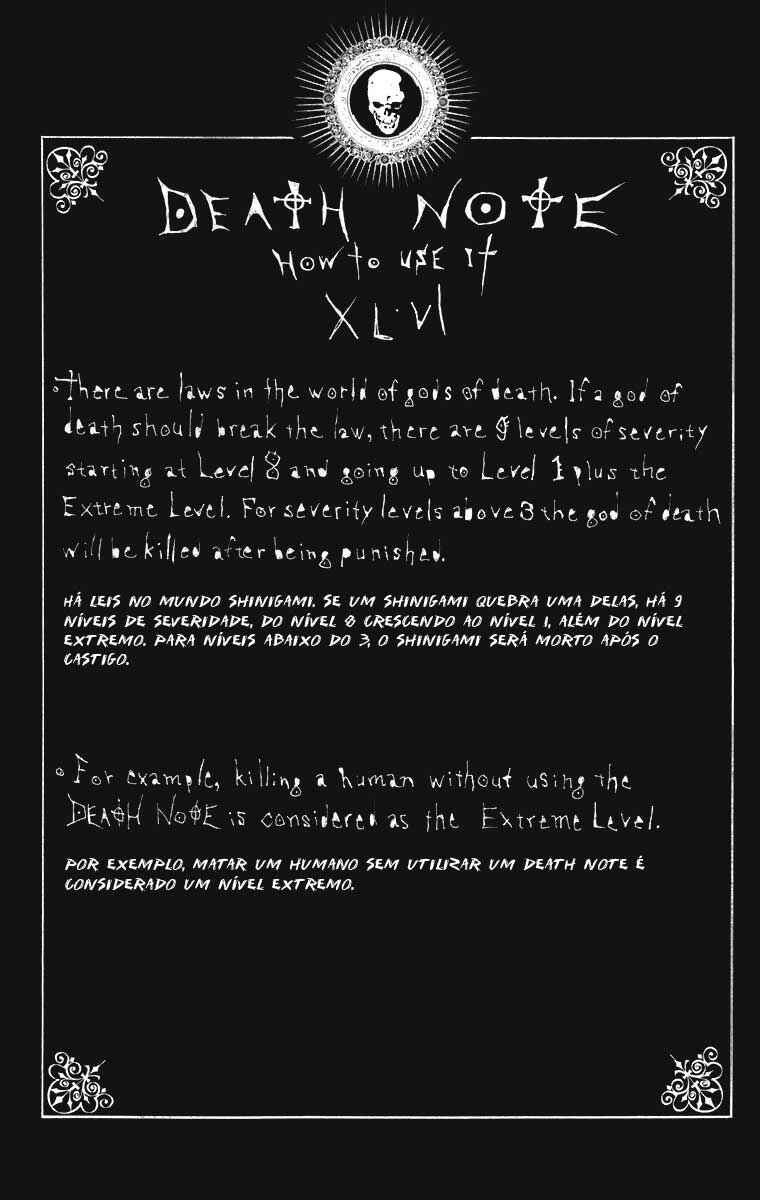 DEATH NOTE
How to use it
XLVI
There are laws in the world of gods of death. If a god of
death should break the law, there are 9 levels of severity
starting at Level 8 and going up to Level 1 plus the
Extreme Level. For severity levels above 3 the god of death
will be killed after being punished.
HÁ LEIS NO MUNDO SHINIGAMI. SE UM SHINIGAMI QUEBRA UMA DELAS, HÁ 9
NÍVEIS DE SEVERIDADE, DO NÍVEL 8 CRESCENDO AO NÍVEL 1, ALÉM DO NÍVEL
EXTREMO. PARA NÍVEIS ABAIXO DO 3, O SHINIGAMI SERÁ MORTO APÓS O
CASTIGO.
For example, killing a human without using the
DEATH NOTE is considered as the Extreme Level.
POR EXEMPLO, MATAR UM HUMANO SEM UTILIZAR UM DEATH NOTE É
CONSIDERADO UM NÍVEL EXTREMO.